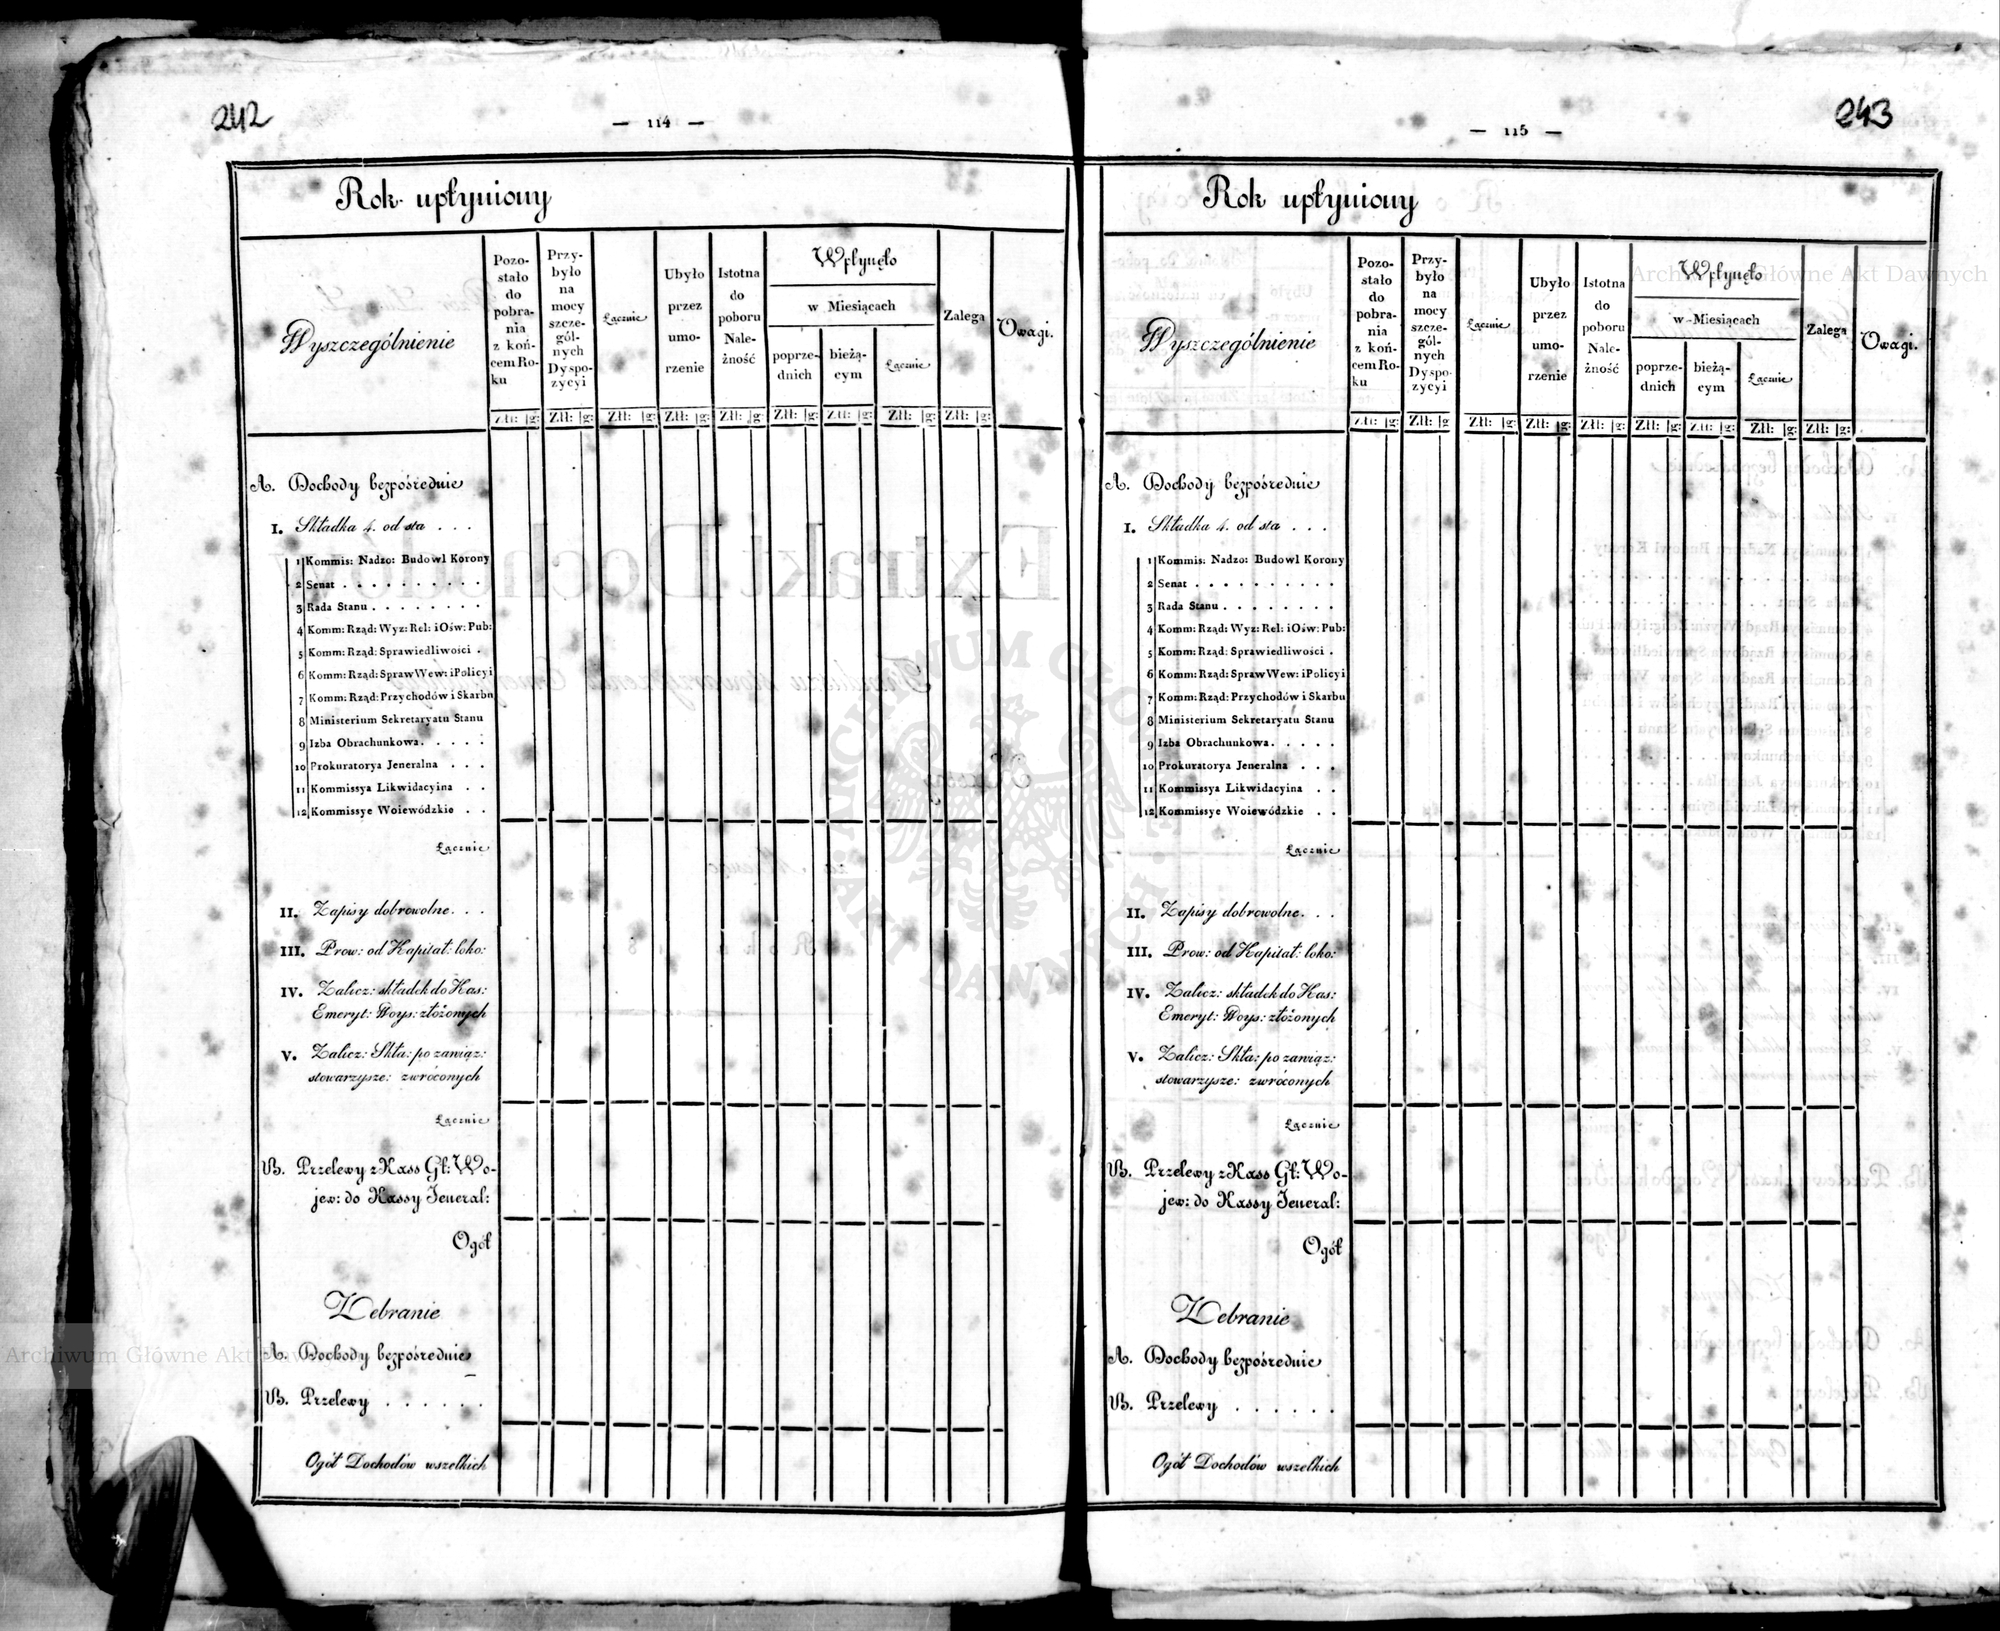 242
— 114 —
Rok upłyniony
Wyszczególnienie
Pozo-
stało
do
pobra-
nia
z koń-
cem Ro-
ku
Przy-
było
na
mocy
szcze-
gól-
nych
Dyspo-
zycyi
Łącznie
Ubyło
przez
umo-
rzenie
Istotna
do
poboru
Nale-
żność
Wpłynęło
w Miesiącach
poprze-
dnich
bieżą-
cym
Łącznie
Zalega
Uwagi.
Złt: g: Złł: g: Złł: g: Złł: g: Złł: g: Złł: g: Złł: g: Złł: g: Złł: g:
A. Dochody bezpośrednie
I. Składka 4. od sta . . .
1 Kommis: Nadzo: Budowl Korony
2 Senat . . . . . . . . . .
3 Rada Stanu . . . . . . . .
4 Komm: Rząd: Wyz: Rel: i Ośw: Pub:
5 Komm: Rząd: Sprawiedliwości .
6 Komm: Rząd: Spraw Wew: i Policyi
7 Komm: Rząd: Przychodów i Skarbu
8 Ministerium Sekretaryatu Stanu
9 Izba Obrachunkowa . . . . .
10 Prokuratorya Jeneralna . . .
11 Kommissya Likwidacyina . .
12 Kommissye Woiewódzkie . .
Łącznie
II. Zapisy dobrowolne . . .
III. Prow: od Kapitał: loko:
IV. Zalicz: składek do Kas:
Emeryt: Woys: złóżonych
V. Zalicz: Skła: po zawiąz:
stowarzysze: zwróconych
Łącznie
B. Przelewy z Kass Gł: Wo-
jew: do Kassy Jeneral:
Ogół
Zebranie
A. Dochody bezpośrednie
B. Przelewy . . . . . .
Ogół Dochodów wszelkich
243
— 115 —
Rok upłyniony
Wyszczególnienie
Pozo-
stało
do
pobra-
nia
z koń-
cem Ro-
ku
Przy-
było
na
mocy
szcze-
gól-
nych
Dyspo-
zycyi
Łącznie
Ubyło
przez
umo-
rzenie
Istotna
do
poboru
Nale-
żność
Wpłynęło
w Miesiącach
poprze-
dnich
bieżą-
cym
Łącznie
Zalega
Uwagi.
Złt: g: Złł: g Złł: g: Złł: g: Złł: g: Złł: g: Złł: g: Złł: g: Złł: g:
A. Dochody bezpośrednie
I. Składka 4. od sta . . .
1 Kommis: Nadzo: Budowl Korony
2 Senat . . . . . . . . . .
3 Rada Stanu . . . . . . . .
4 Komm: Rząd: Wyz: Rel: i Ośw: Pub:
5 Komm: Rząd: Sprawiedliwości .
6 Komm: Rząd: Spraw Wew: i Policyi
7 Komm: Rząd: Przychodów i Skarbu
8 Ministerium Sekretaryatu Stanu
9 Izba Obrachunkowa . . . . .
10 Prokuratorya Jeneralna . . .
11 Kommissya Likwidacyina . .
12 Kommissye Woiewódzkie . .
Łącznie
II. Zapisy dobrowolne . . .
III. Prow: od Kapitał: loko:
IV. Zalicz: składek do Kas:
Emeryt: Woys: złóżonych
V. Zalicz: Skła: po zawiąz:
stowarzysze: zwróconych
Łącznie
B. Przelewy z Kass Gł: Wo-
jew: do Kassy Jeneral:
Ogół
Zebranie
A. Dochody bezpośrednie
B. Przelewy . . . . . .
Ogół Dochodów wszelkich
Archiwum Główne Akt Dawnych
Archiwum Główne Akt Dawnych
ARCHIWUM GŁÓWNE AKT DAWNYCH